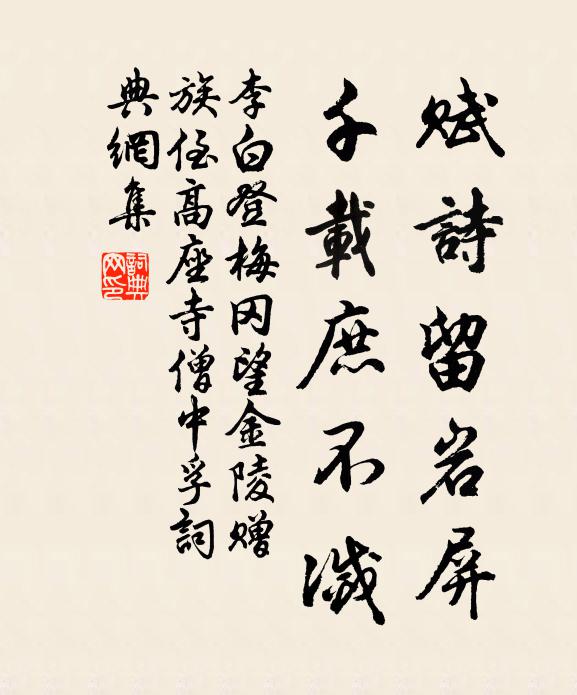 賦詩留岩屏
千載庶不滅
李白登梅冈望金陵赠
族侄高座寺僧中孚詞
典網集
詞典网印